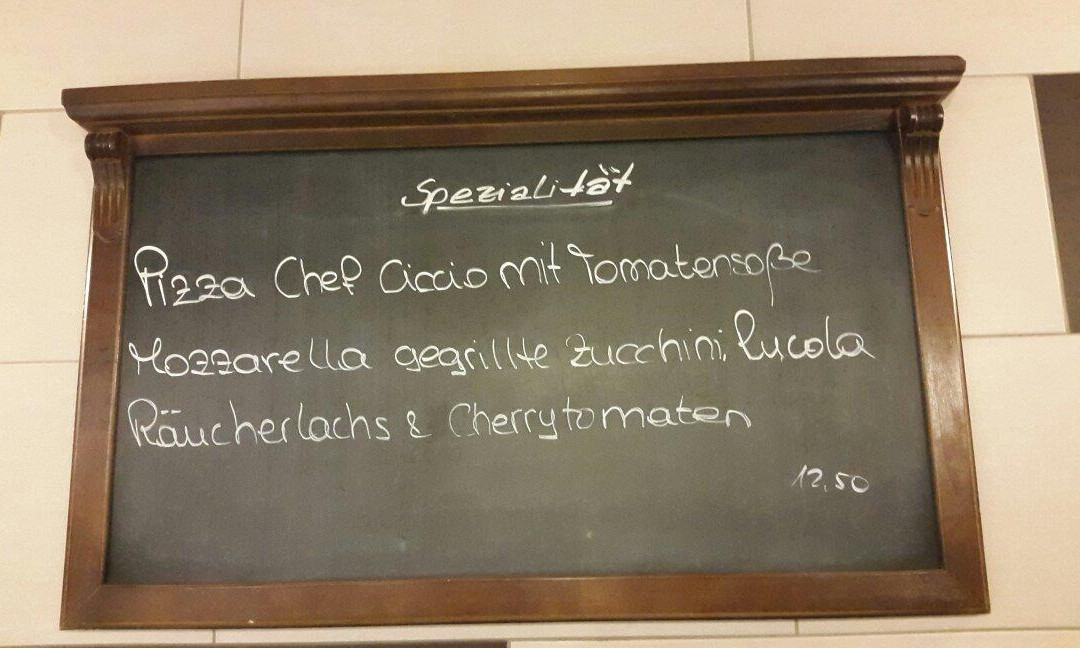 Spezialität
Pizza Chef Ciccio mit Tomatensoße
Mozzarella gegrillte Zucchini, Rucola
Räucherlachs & Cherrytomaten
12,50